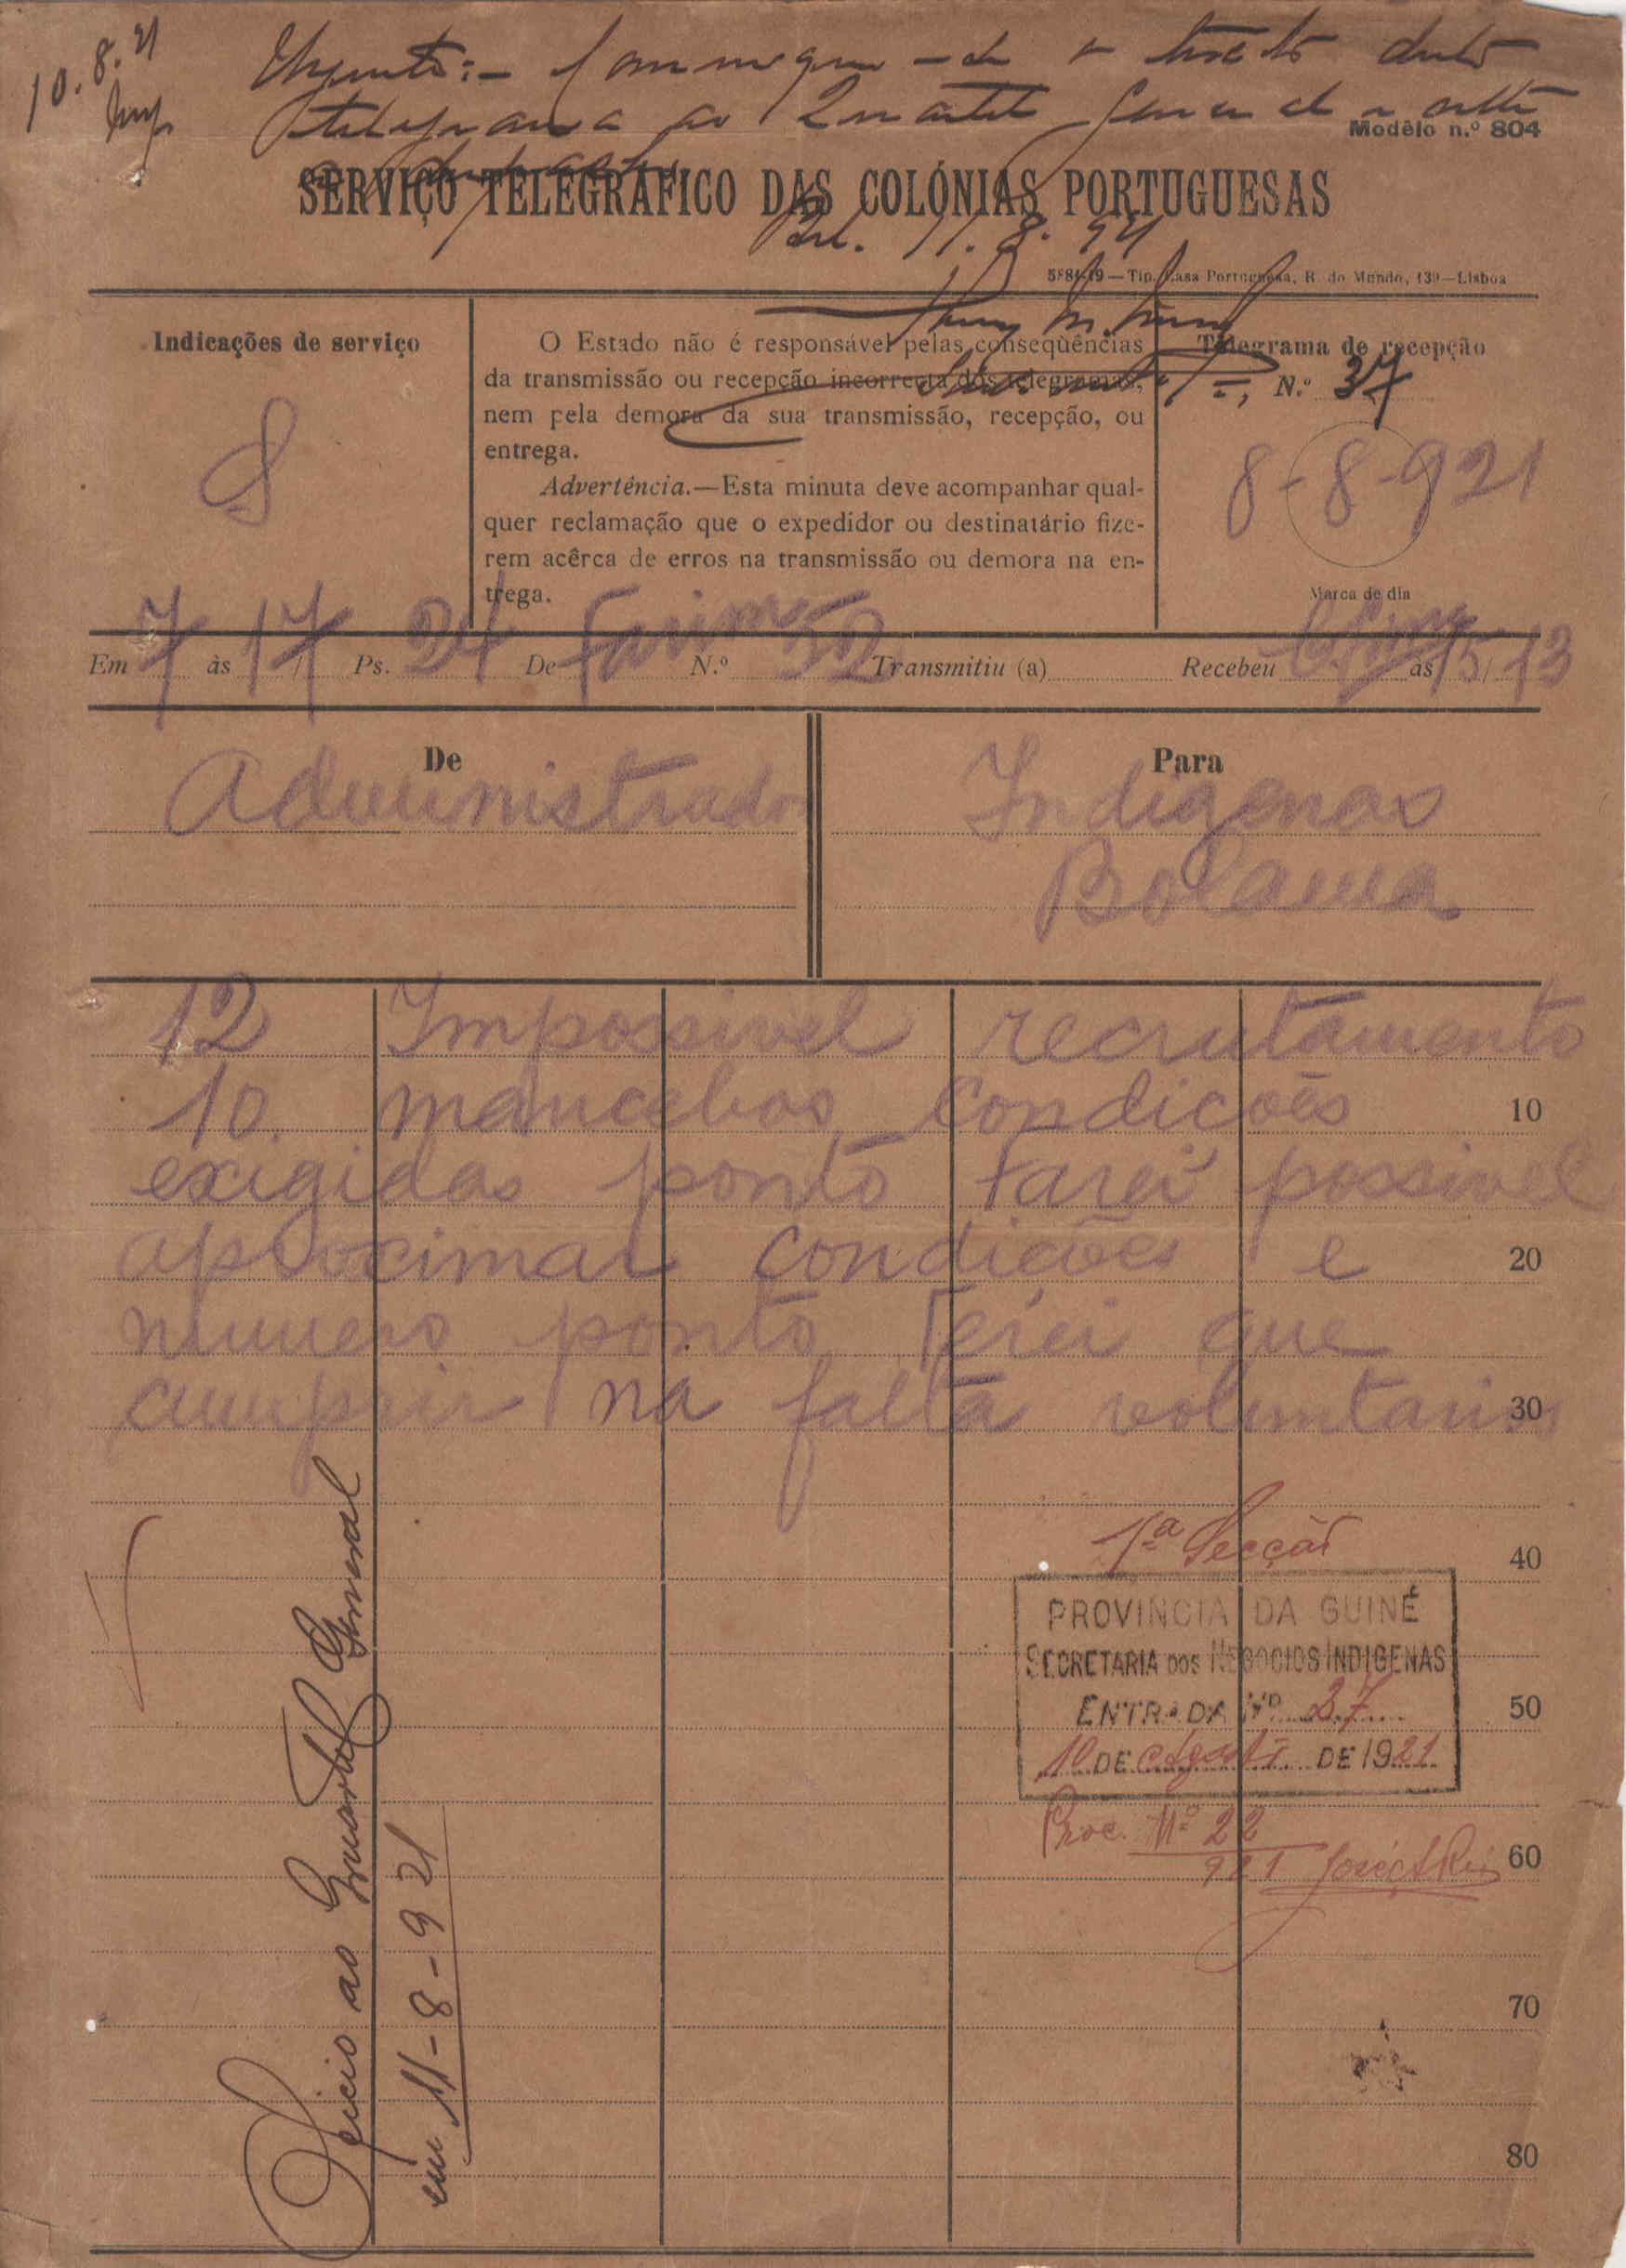 10.8.21
Urgente:- Communique-se o texto deste
telegrama ao Quartel General
Modêlo n.º 804
SERVIÇO TELEGRÁFICO DAS COLÓNIAS PORTUGUESAS
Bol. 11.8.921
5584-19—Tip. Casa Portuguesa, R. do Mundo, 139—Lisboa
Indicações de serviço
S
O Estado não é responsável pelas conseqùências
da transmissão ou recepção incorrecta dos telegramas,
nem pela demora da sua transmissão, recepção, ou
entrega.
Advertência.—Esta minuta deve acompanhar qual-
quer reclamação que o expedidor ou destinatário fize-
rem acêrca de erros na transmissão ou demora na en-
trega.
Telegrama de recepção
N.º 37
8-8-921
Marca de dia
Em 7 às 17/ Ps. 24 De Farim N.º 52 Transmitiu (a) Recebeu às 15/13
De
Administrador
Para
Indigenas
Bolama
12 Impossivel recrutamento
10 mancebos condicões 10
exigidas ponto farei possivel
aproximar condições e 20
numero ponto Terei que
cumprir na falta voluntarios 30
1ª Secção
40
PROVINCIA DA GUINÉ
SECRETARIA DOS NEGOCIOS INDIGENAS
ENTRADA Nº 37
50
10 DE Agosto DE 1921
Proc. Nº 22
921
60
70
80
Oficio ao Quartel General
em 11-8-921